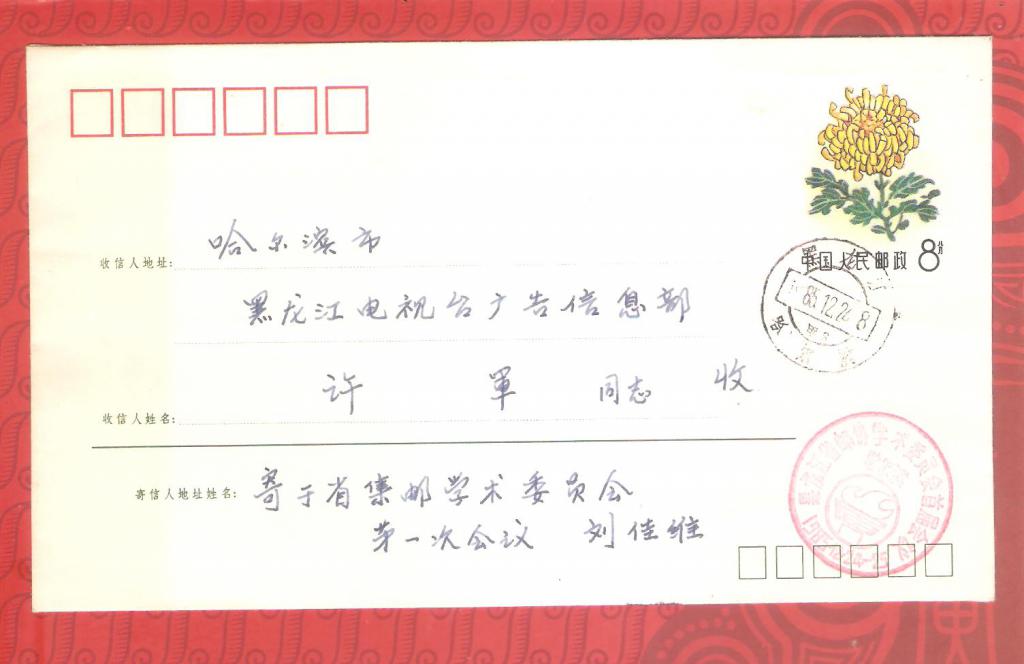 中国人民邮政 8分
收信人地址: 哈尔滨市
黑龙江电视台广告信息部
收信人姓名: 许 军 同志 收
寄信人地址姓名: 寄于省集邮学术委员会
第一次会议 刘佳维
85.12.24.8
学术委员会首届会议